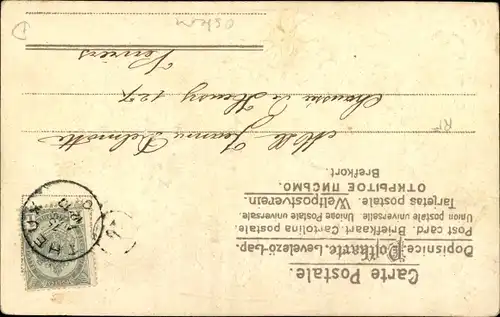 Carte Postale.
Dopisnice. Postkarte. Levelező-Lap.
Post card. Briefkaart. Cartolina postale.
Union postale universelle Unione Postale universale
Tarjetas postale. Weltpostverein.
ОТКРЫТОЕ ПИСЬМО.
Brefkort.
Mlle Jeanne Delmotte
Chaussée de Heusy 127
Verviers